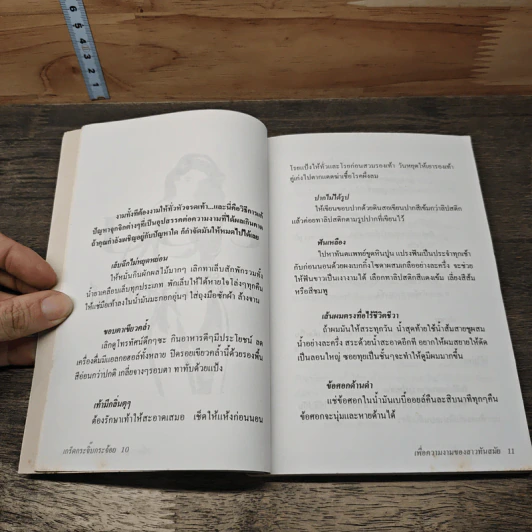 งามทั้งทีต้องงามให้ทั่วหัวจรดเท้า...และนี่คือวิธีการแก้
ปัญหาจุกจิกต่างๆที่เป็นอุปสรรคต่อความงามที่ได้ผลเกินคาด
ถ้าคุณกำลังเผชิญอยู่กับปัญหาใด ก็กำจัดมันให้หมดไปได้เลย
เล็บฉีกไม่หยุดหย่อน
ให้หมั่นกินผักผลไม้มากๆ เลิกทาเล็บสักพักรวมทั้ง
น้ำยาเคลือบเล็บทุกประเภท พักเล็บให้ได้หายใจโล่งๆคืน
ให้แช่มือเท้าลงในน้ำมันมะกอกอุ่นๆ ใส่ถุงมือซักผ้า ล้างจาน
ขอบตาเขียวคล้ำ
เลิกดูโทรทัศน์ดึกๆซะ กินอาหารดีๆมีประโยชน์ ลด
เครื่องดื่มมีแอลกอฮอล์ทั้งหลาย ปิดรอยเขียวคล้ำนี้ด้วยรองพื้น
สีอ่อนกว่าปกติ เกลี่ยจางๆรอบตา ทาทับด้วยแป้ง
เท้ามีกลิ่นตุๆ
ต้องรักษาเท้าให้สะอาดเสมอ เช็ดให้แห้งก่อนนอน
เกร็ดกระจิ๊บกระจ้อย 10
โรยแป้งให้ทั่วและโรยก่อนสวมรองเท้า วันหยุดให้เอารองเท้า
คู่เก่งไปตากแดดฆ่าเชื้อโรคผึ่งลม
ปากไม่ได้รูป
ให้เขียนขอบปากด้วยดินสอเขียนปากสีเข้มกว่าลิปสติก
แล้วค่อยทาลิปสติกตามรูปปากที่เขียนไว้
ฟันเหลือง
ไปหาทันตแพทย์ขูดหินปูน แปรงฟันเป็นประจำทุกเช้า
กับก่อนนอนด้วยผงเบกกิ้งโซดาผสมเกลืออย่างละครึ่ง จะช่วย
ให้ฟันขาวเป็นเงางามได้ เลือกทาลิปสติกสีแดงเข้ม เลี่ยงสีส้ม
หรือสีชมพู
เส้นผมตรงทื่อไร้ชีวิตชีวา
ถ้าผมมันให้สระทุกวัน น้ำสุดท้ายใช้น้ำส้มสายชูผสม
น้ำอย่างละครึ่ง สระด้วยน้ำสะอาดอีกที อยากให้ผมสยายให้ดัด
เป็นลอนใหญ่ ซอยทุยเป็นชั้นๆจะทำให้ดูมีผมมากขึ้น
ข้อศอกด้านดำ
แช่ข้อศอกในน้ำมันเบบี้ออยล์คืนละสิบนาทีทุกๆคืน
ข้อศอกจะนุ่มและหายด้านได้
เพื่อความงามของสาวทันสมัย 11
5
4
3
2
1